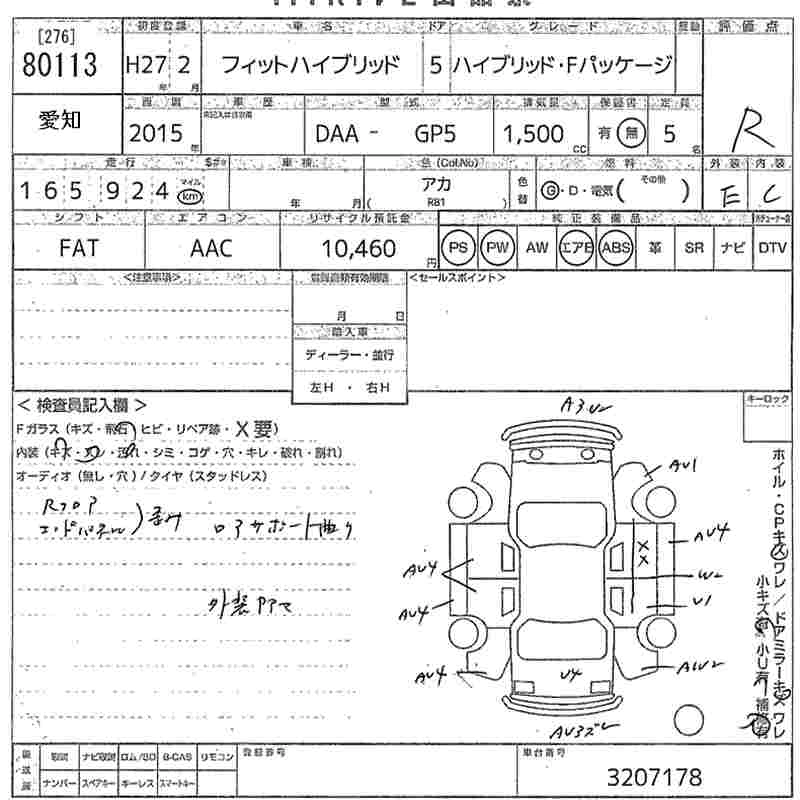 [276]
80113
初度登録 車名 ドア グレード 評価点
H27 2 フィットハイブリッド 5 ハイブリッド・Fパッケージ
年 月
愛知
西暦 車歴 型式 排気量 保証書 定員
2015 年 DAA - GP5 1,500 CC 有 無 5 名
R
走行 車検 色(Col.No) 燃料 外装 内装
165924 マイル km 年 月 アカ 色替 G・D・電気( その他 ) E C
( R81 )
シフト エアコン リサイクル預託金 純正装備品
FAT AAC 10,460 円 PS PW AW エアB ABS 革 SR ナビ DTV
<注意事項> <セールスポイント>
月 日
輸入車
ディーラー・並行
左H ・ 右H
< 検査員記入欄 > キーロック
Fガラス (キズ・飛石 ヒビ・リペア跡・X要)
内装 (キズ・スレ・汚れ・シミ・コゲ・穴・キレ・破れ・割れ)
オーディオ (無し・穴) / タイヤ (スタッドレス)
Rフロア
エンドパネル ) 歪み ロアサポート曲り
外装ココマ
A3
AU1
AU4
AU4
W2
U1
AU4
AU4
AW2
U4
AU3ズレ
ホイル・CPキズワレ/ドアミラーキズワレ
小キズ有 小U有 補修有
取説 ナビ取説 ロム/SD B-CAS リモコン 登録番号 車台番号
ナンバー スペアキー キーレス スマートキー
3207178